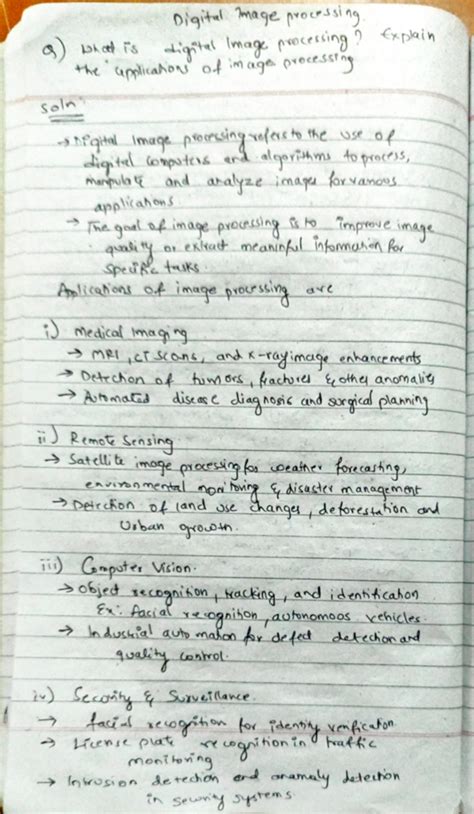 Digital Image processing.
Q) What is digital Image processing? Explain
the applications of image processing
Soln:
→ Digital Image processing refers to the use of
digital computers and algorithms to process,
manpulate and analyze images for various
applications
→ The goal of image processing is to improve image
quality or extract meaninful information for
specific tasks.
Applications of image processing are
i) Medical Imaging
→ MRI, CT scans, and x-ray image enhancements
→ Detection of tumors, fractures & other anomalies
→ Automated disease diagnosis and surgical planning
ii) Remote Sensing
→ Satellite image processing for weather forecasting,
environmental monitoring & disaster management
→ Detection of land use changes, deforestation and
Urban growth.
iii) Computer Vision.
→ Object recognition, tracking, and identification
Ex: facial recognition, autonomoos vehicles.
→ Industrial automation for defect detection and
quality control.
iv) Security & Surveillance.
→ facial recognition for identity verification
→ License plate recognition in traffic
monitoring
→ Intrusion detection and anamaly detection
in security systems.